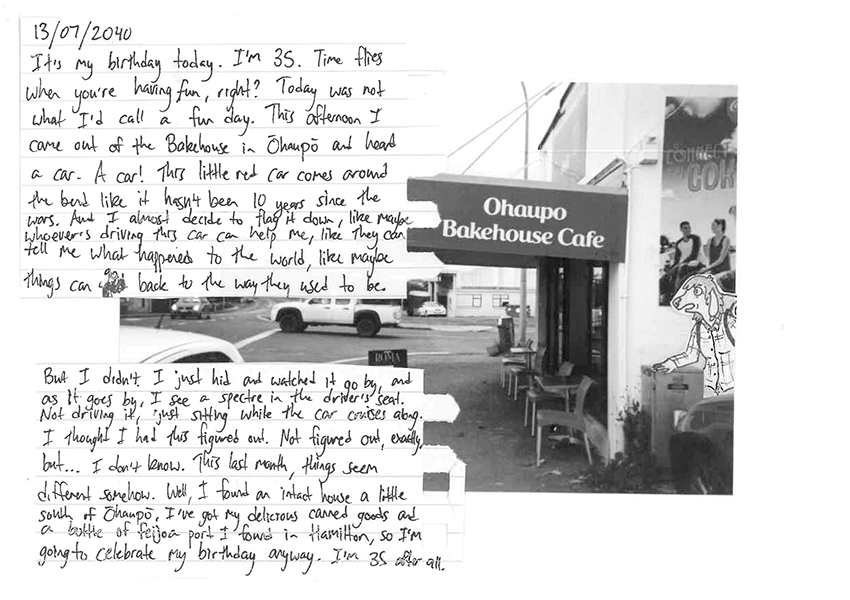 13/07/2040
It's my birthday today. I'm 35. Time flies
when you're having fun, right? Today was not
what I'd call a fun day. This afternoon I
came out of the Bakehouse in Ōhaupō and heard
a car. A car! This little red car comes around
the bend like it hasn't been 10 years since the
wars. And I almost decide to flag it down, like maybe
whoever's driving this car can help me, like they can
tell me what happened to the world, like maybe
things can back to the way they used to be.
Ohaupo
Bakehouse Cafe
CONNECT
COK
ROMA
But I didn't. I just hid and watched it go by, and
as it goes by, I see a spectre in the driver's seat.
Not driving it, just sitting while the car cruises along.
I thought I had this figured out. Not figured out, exactly,
but... I don't know. This last month, things seem
different somehow. Well, I found an intact house a little
south of Ōhaupō, I've got my delicious canned goods and
a bottle of feijoa port I found in Hamilton, so I'm
going to celebrate my birthday anyway. I'm 35 after all.